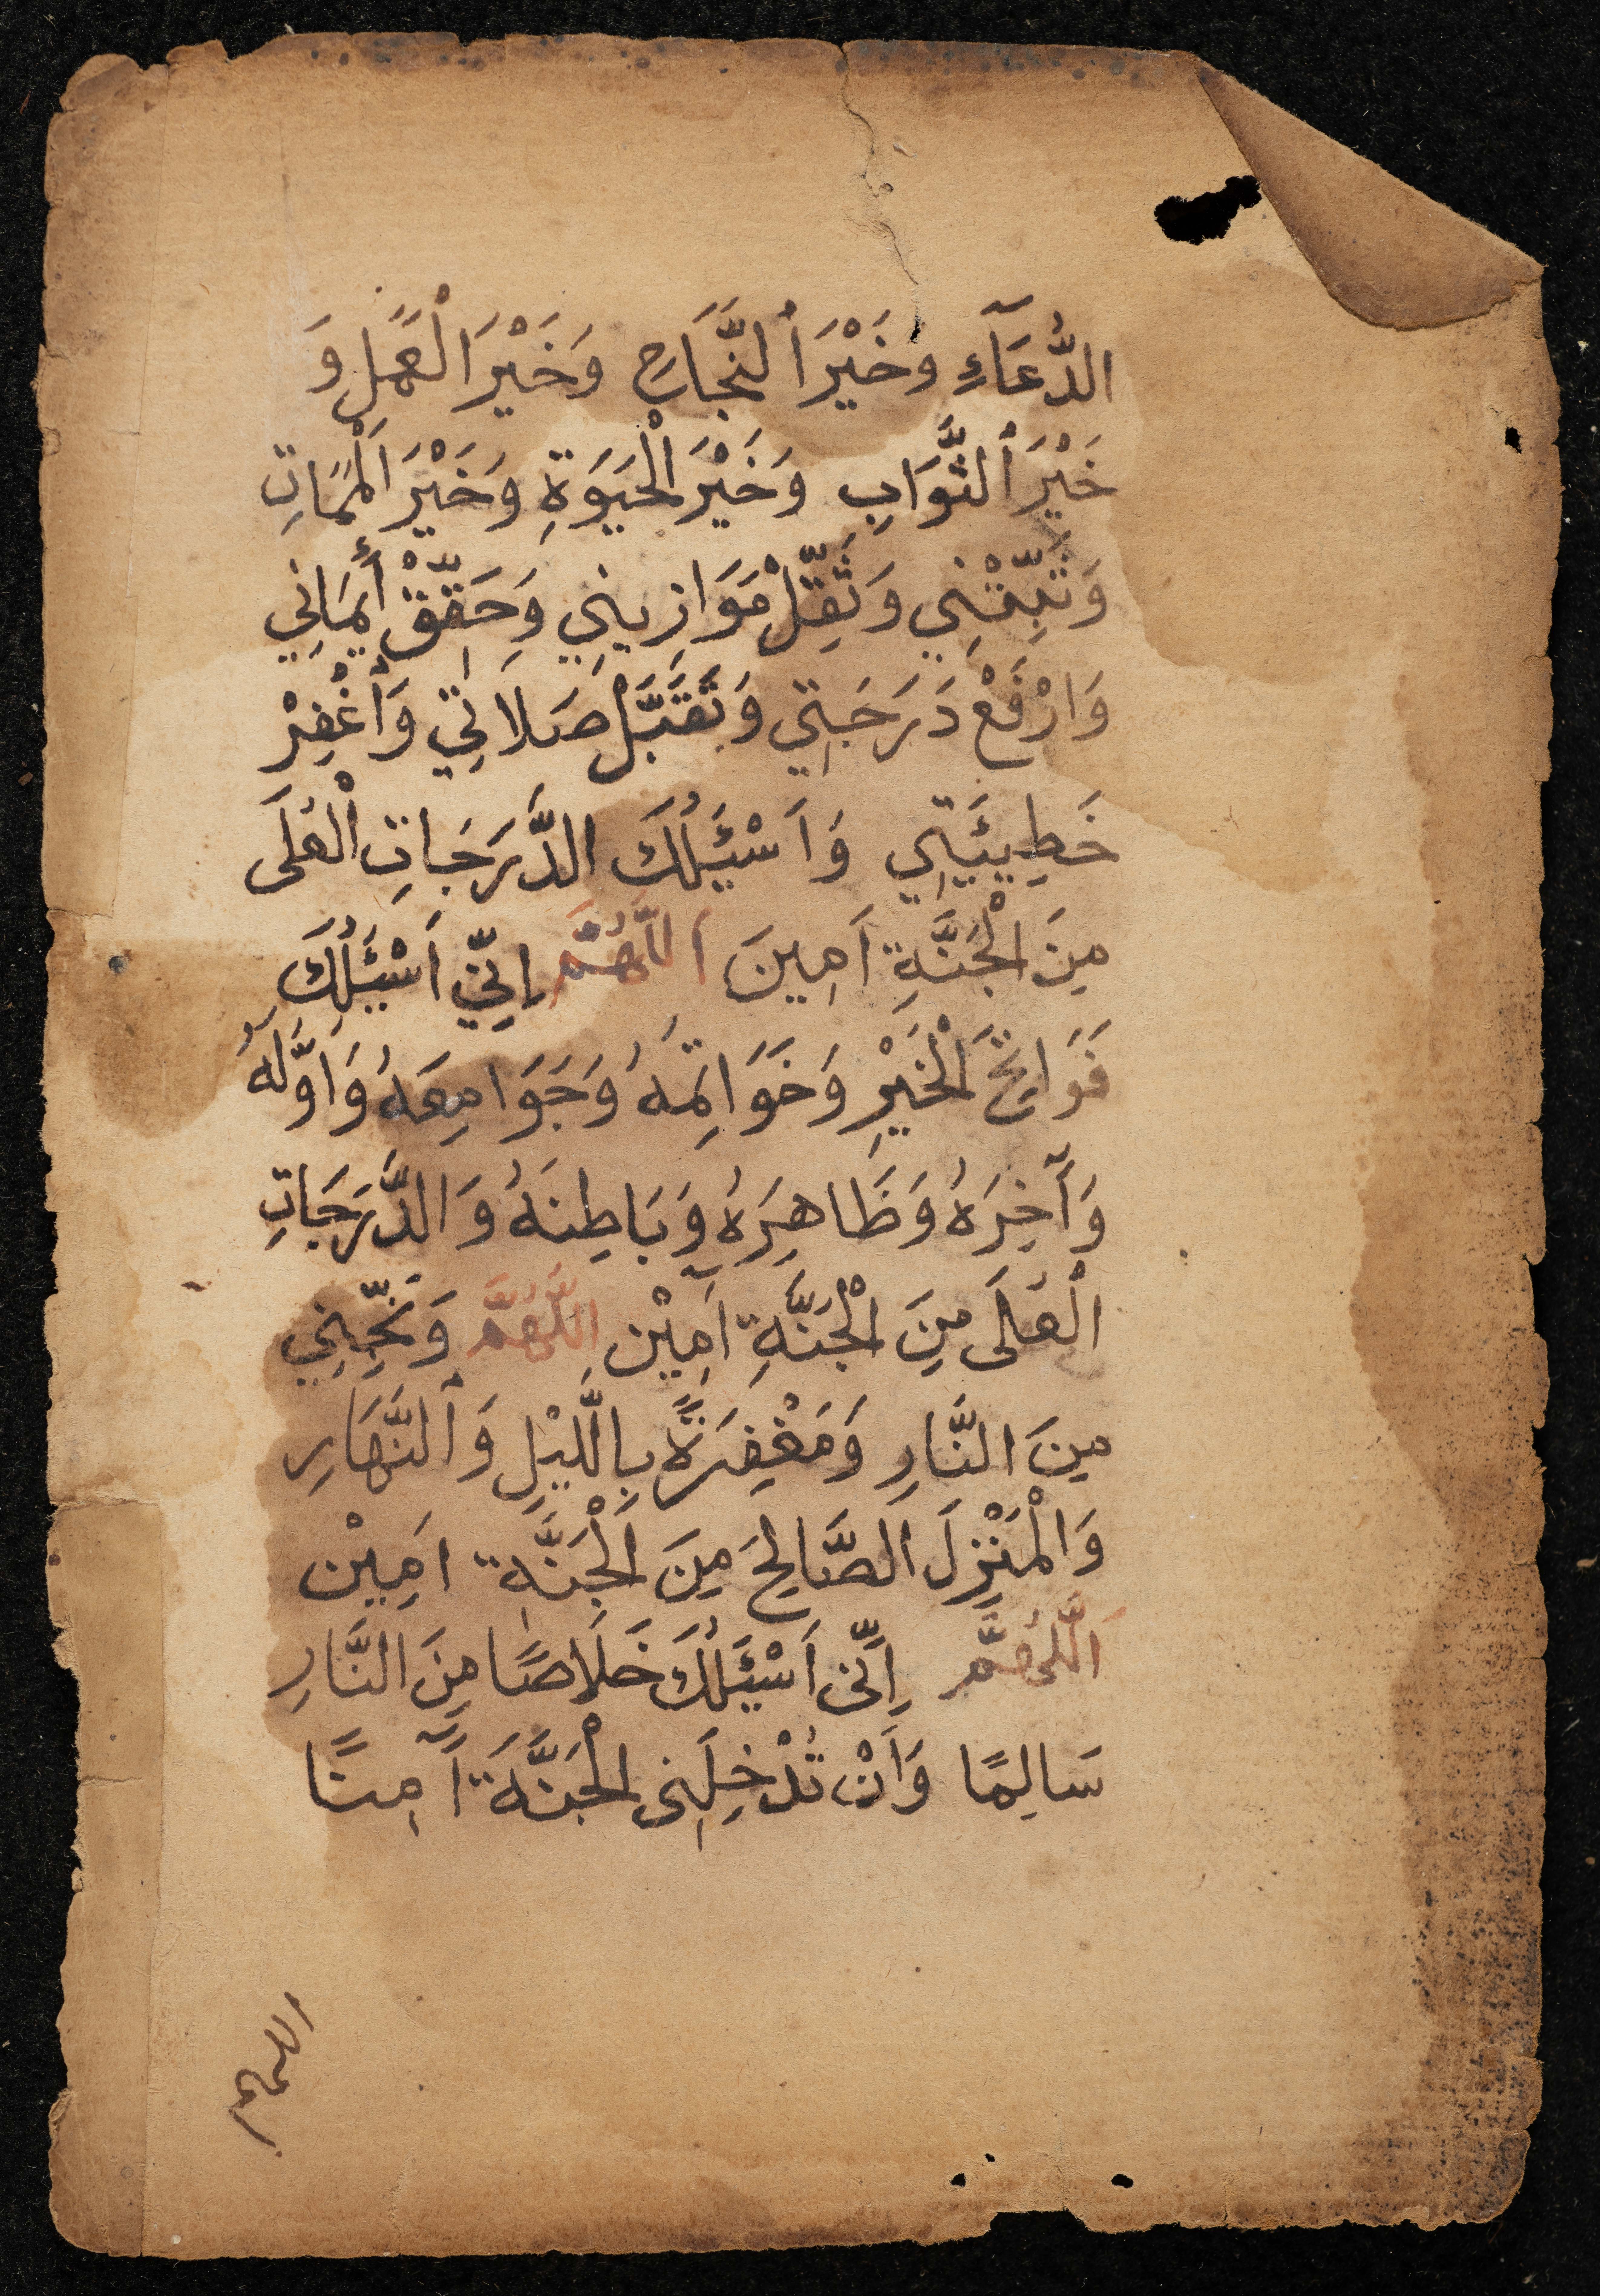 الدُّعَآءِ وَخَيْرَ ٱلنَّجَاحِ وَخَيْرَ الْعَمَلِ وَ
خَيْرَ ٱلثَّوَابِ وَخَيْرَ الْحَيَوةِ وَخَيْرَ الْمَمَاتِ
وَثَبِّتْنِي وَثَقِّلْ مَوَازِينِي وَحَقِّقْ أَيمَانِي
وَارْفَعْ دَرَجَتِي وَتَقَبَّلْ صَلَاتِي وَٱغْفِرْ
خَطِيئَتِي وَاَسْئَلُكَ الدَّرَجَاتِ الْعُلَى
مِنَ الْجَنَّةِ اَمِينَ اَللَّهُمَّ اِنِّي اَسْئَلُكَ
فَوَاتِحَ الْخَيْرِ وَخَوَاتِمَهُ وَجَوَامِعَهُ وَاَوَّلَهُ
وَآخِرَهُ وَظَاهِرَهُ وَبَاطِنَهُ وَالدَّرَجَاتِ
الْعُلَى مِنَ الْجَنَّةِ آمِيْن اللَّهُمَّ وَنَجِّنِي
مِنَ النَّارِ وَمَغْفِرَةً بِاللَّيْلِ وَٱلنَّهَارِ
وَالْمَنْزِلَ الصَّالِحَ مِنَ الْجَنَّةِ اَمِيْن
اَللَّهُمَّ اِنِّى اَسْئَلُكَ خَلَاصًا مِنَ النَّارِ
سَالِمًا وَاَنْ تُدْخِلَنِى الْجَنَّةَ آمِنًا
اللهم